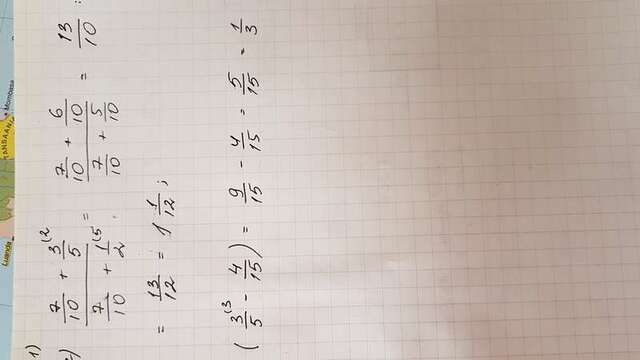 Luanda
TANSAANIA
Mombasa
1)
2) (7/10 + 3/5 (2) / (7/10 + 1/2 (5) = (7/10 + 6/10) / (7/10 + 5/10) = 13/10 :
= 13/12 = 1 1/12 ;
( 3/5 (3 - 4/15 ) = 9/15 - 4/15 = 5/15 = 1/3